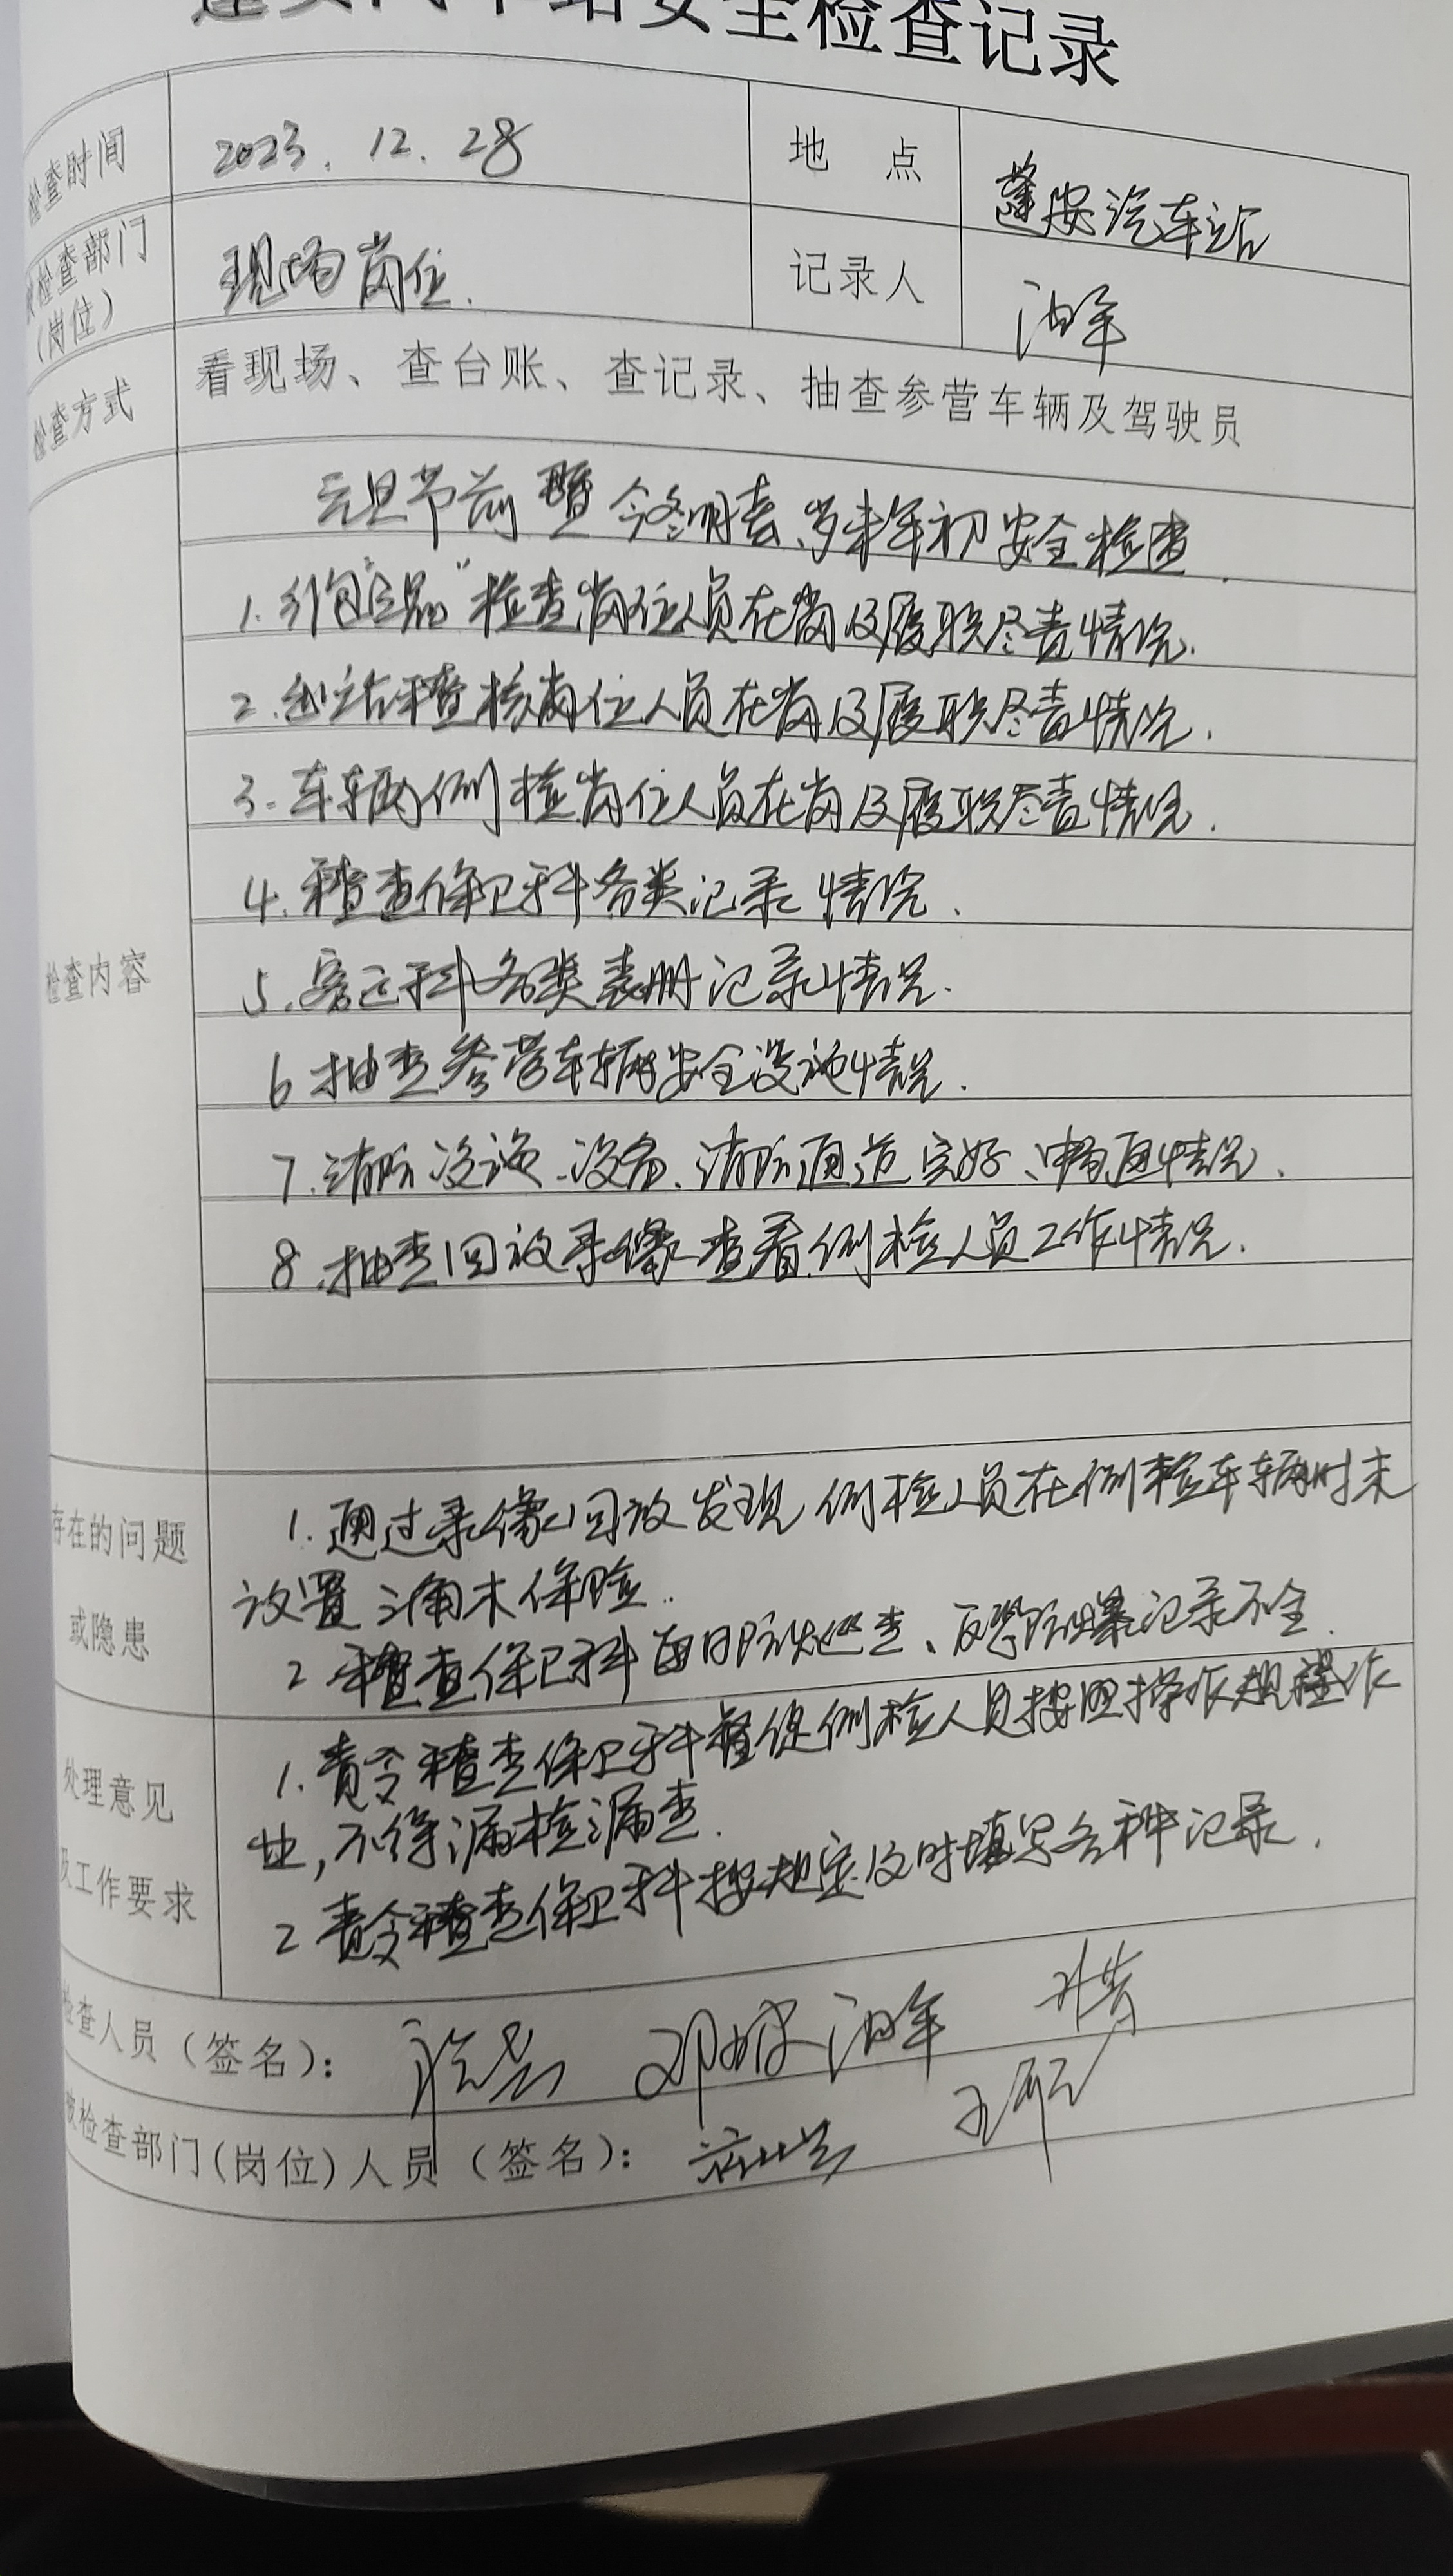 蓬安汽车站安全检查记录
检查时间 2023.12.28 地点 蓬安汽车站
被检查部门(岗位) 现场岗位. 记录人
检查方式 看现场、查台账、查记录、抽查参营车辆及驾驶员
检查内容
元旦节前暨今冬明春、岁末年初安全检查.
1. 行包"三品"检查岗位人员在岗及履职尽责情况.
2. 出站稽查核岗位人员在岗及履职尽责情况.
3. 车辆例检岗位人员在岗及履职尽责情况.
4. 稽查保卫科各类记录情况.
5. 客运科各类表册记录情况.
6 抽查参营车辆安全设施情况.
7. 消防设施、设备、消防通道完好、畅通情况.
8. 抽查回放录像查看例检人员工作情况.
存在的问题或隐患
1. 通过录像回放发现例检人员在例检车辆时未
设置三角木保险.
2 稽查保卫科每日防火巡查、反恐防爆记录不全.
处理意见及工作要求
1. 责令稽查保卫科督促例检人员按照操作规程作
业,不得漏检漏查.
2 责令稽查保卫科按规定及时填写各种记录.
检查人员(签名):
被检查部门(岗位)人员(签名):